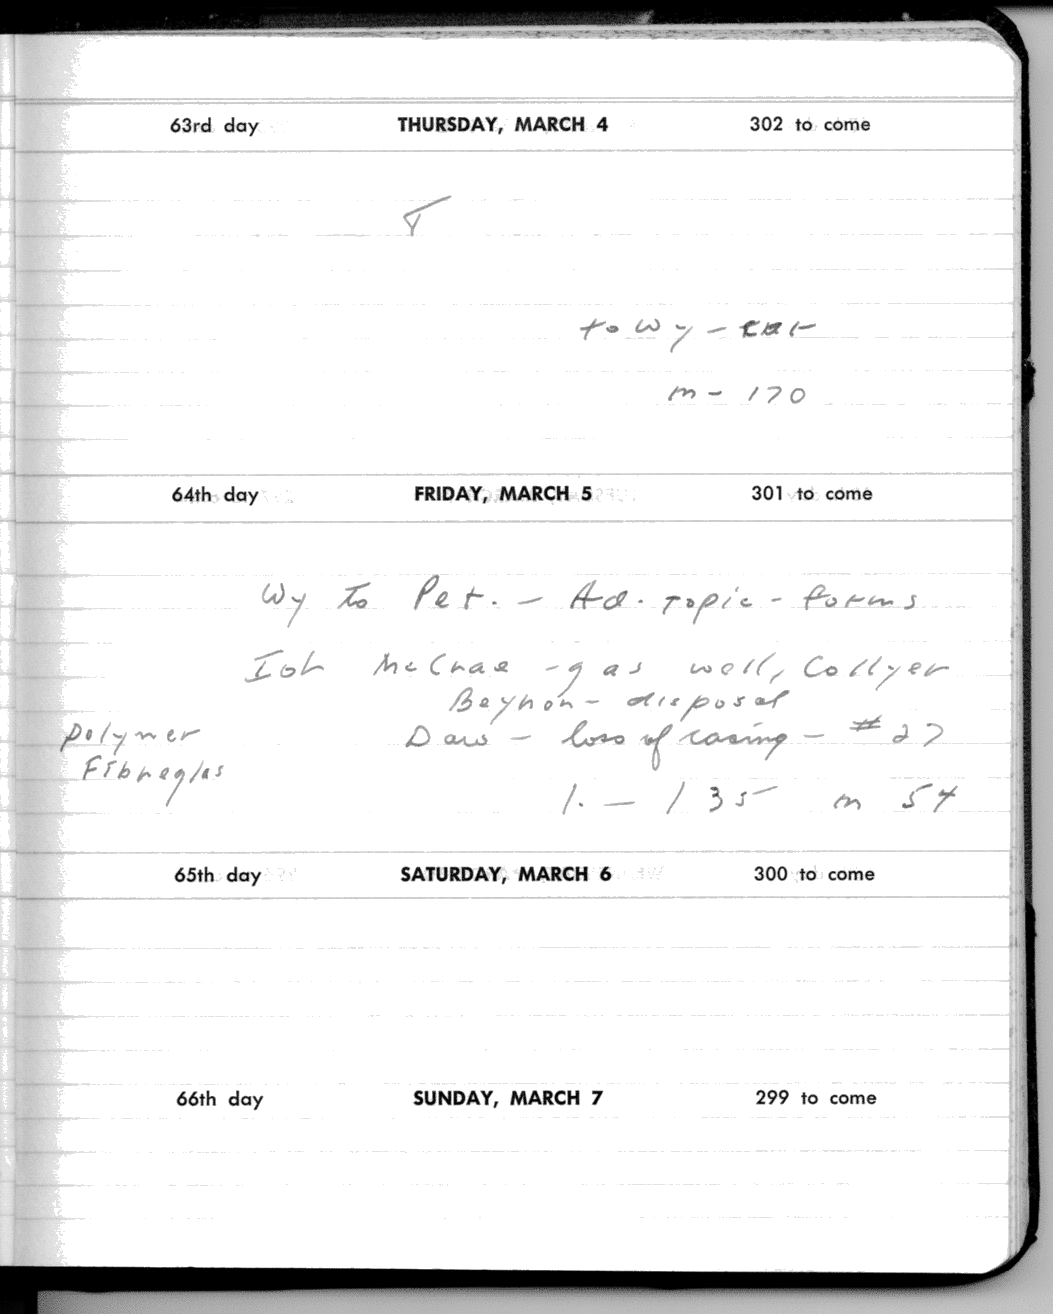 63rd day THURSDAY, MARCH 4 302 to come
T
to Wy -
m - 170
64th day FRIDAY, MARCH 5 301 to come
Wy to Pet. - Ad. Topic - forms
McCrae - gas well, Collyer
Beynon - disposal
polymer Daw - loss of casing - #27
Fibreglas
1. - 135 m 54
65th day SATURDAY, MARCH 6 300 to come
66th day SUNDAY, MARCH 7 299 to come